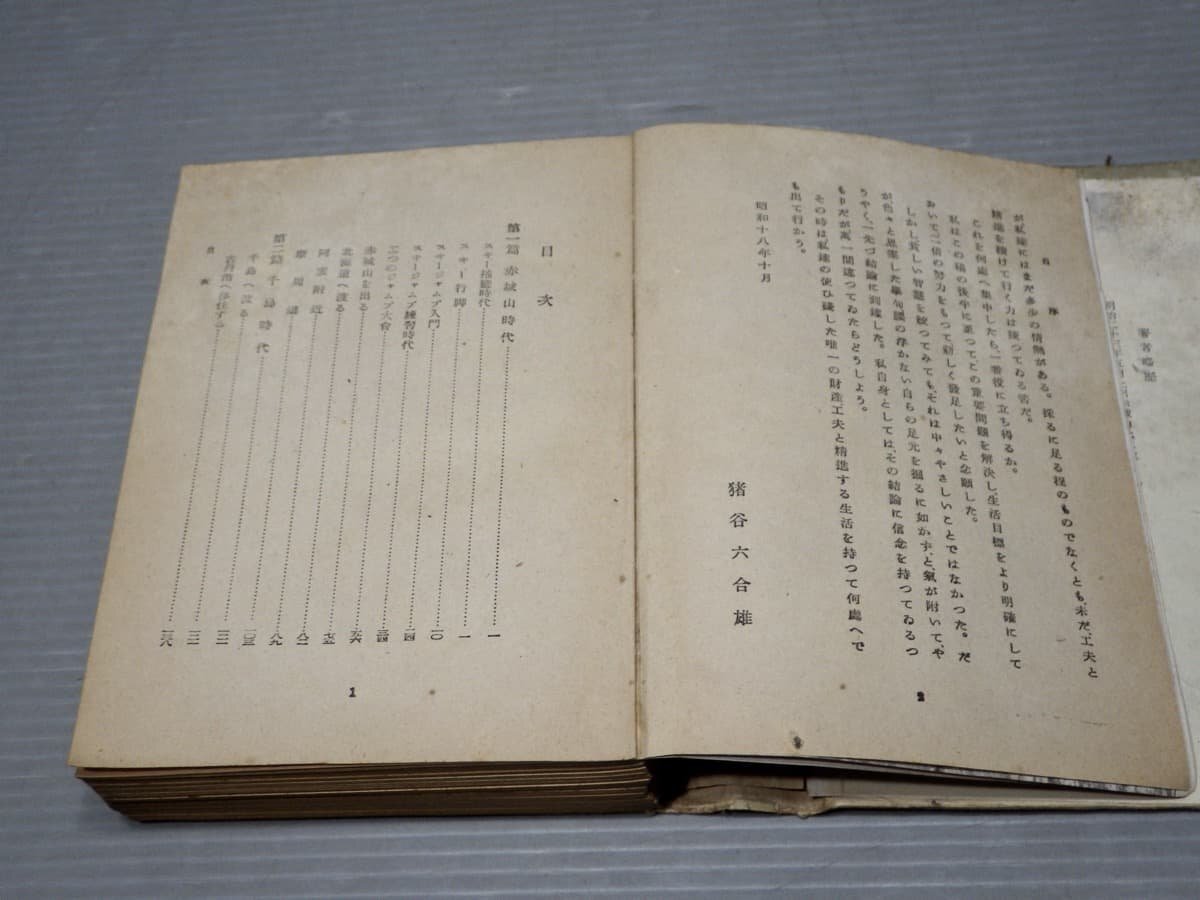 著者略歴
自序
が私達にはまだ多少の情熱がある。採るに足る程のものでなくとも、未だ、工夫と
精進を続けて行く力は持つてゐる筈だ。
これを何處へ集中したら、一番役に立ち得るか。
私はこの稿の後半に至つてこの重要問題を解決し、生活目標をより明確にして
おいて、一倍の努力をもつて新しく發足したいと念願した。
しかし貧しい智慧を絞つてみても、それは中々やさしいことではなかつた。だ
が色々と思案した擧句、議の浮かない自らの足元を掘るに如かず、と、氣が附いて、や
うやく、一先づ結論に到達した。私自身としては、その結論に信念を持つてゐるつ
もりだが萬一間違つてゐたらどうしよう。
その時は私達の使ひ殘した唯一の財産、工夫と精進する生活を持つて何處へで
も出て行かう。
昭和十八年十月
猪谷六合雄
2
目次
第一篇 赤城山時代……一
スキー揺籃時代……一
スキー行脚……一〇
スキージャムプ入門……一四
スキージャムプ練習時代……三四
三つのジャムプ大會……五六
赤城山を出る……七五
北海道へ渡る……八二
阿寒附近……八九
摩周湖……一〇三
第二篇 千島時代……一一一
千島へ渡る……一一一
古丹消へ移住する
目次
1